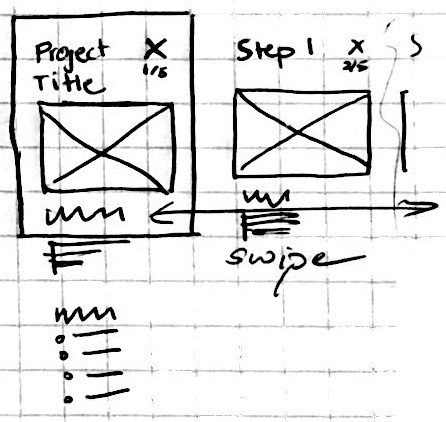 Project X
Title 1/5
Step 1 X
2/5
S
swipe